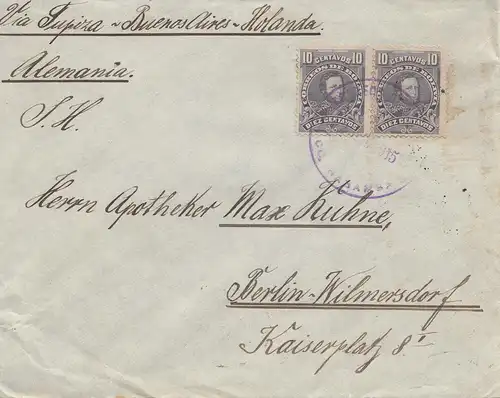 Via Tupiza - Buenos Aires - Holanda.
Alemania.
S. H.
10 CENTAVOS 10 10 CENTAVOS 10
CORREOS DE BOLIVIA CORREOS DE BOLIVIA
DIEZ CENTAVOS DIEZ CENTAVOS
Herrn Apotheker Max Kuhne,
Berlin-Wilmersdorf
Kaiserplatz 8 I